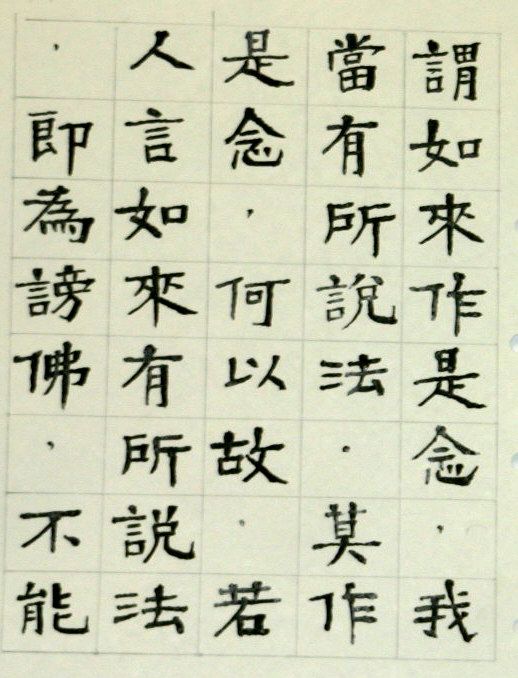 謂如來作是念，我
當有所說法．莫作
是念，何以故．若
人言如來有所說法
．即為謗佛，不能